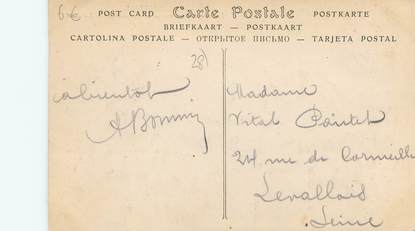 6€
POST CARD Carte Postale POSTKARTE
BRIEFKAART — POSTKAART
CARTOLINA POSTALE — ОТКРЫТОЕ ПИСЬМО — TARJETA POSTAL
28)
à bientot
Madame
Vital
24 rue de Cormeille
Levallois
Seine